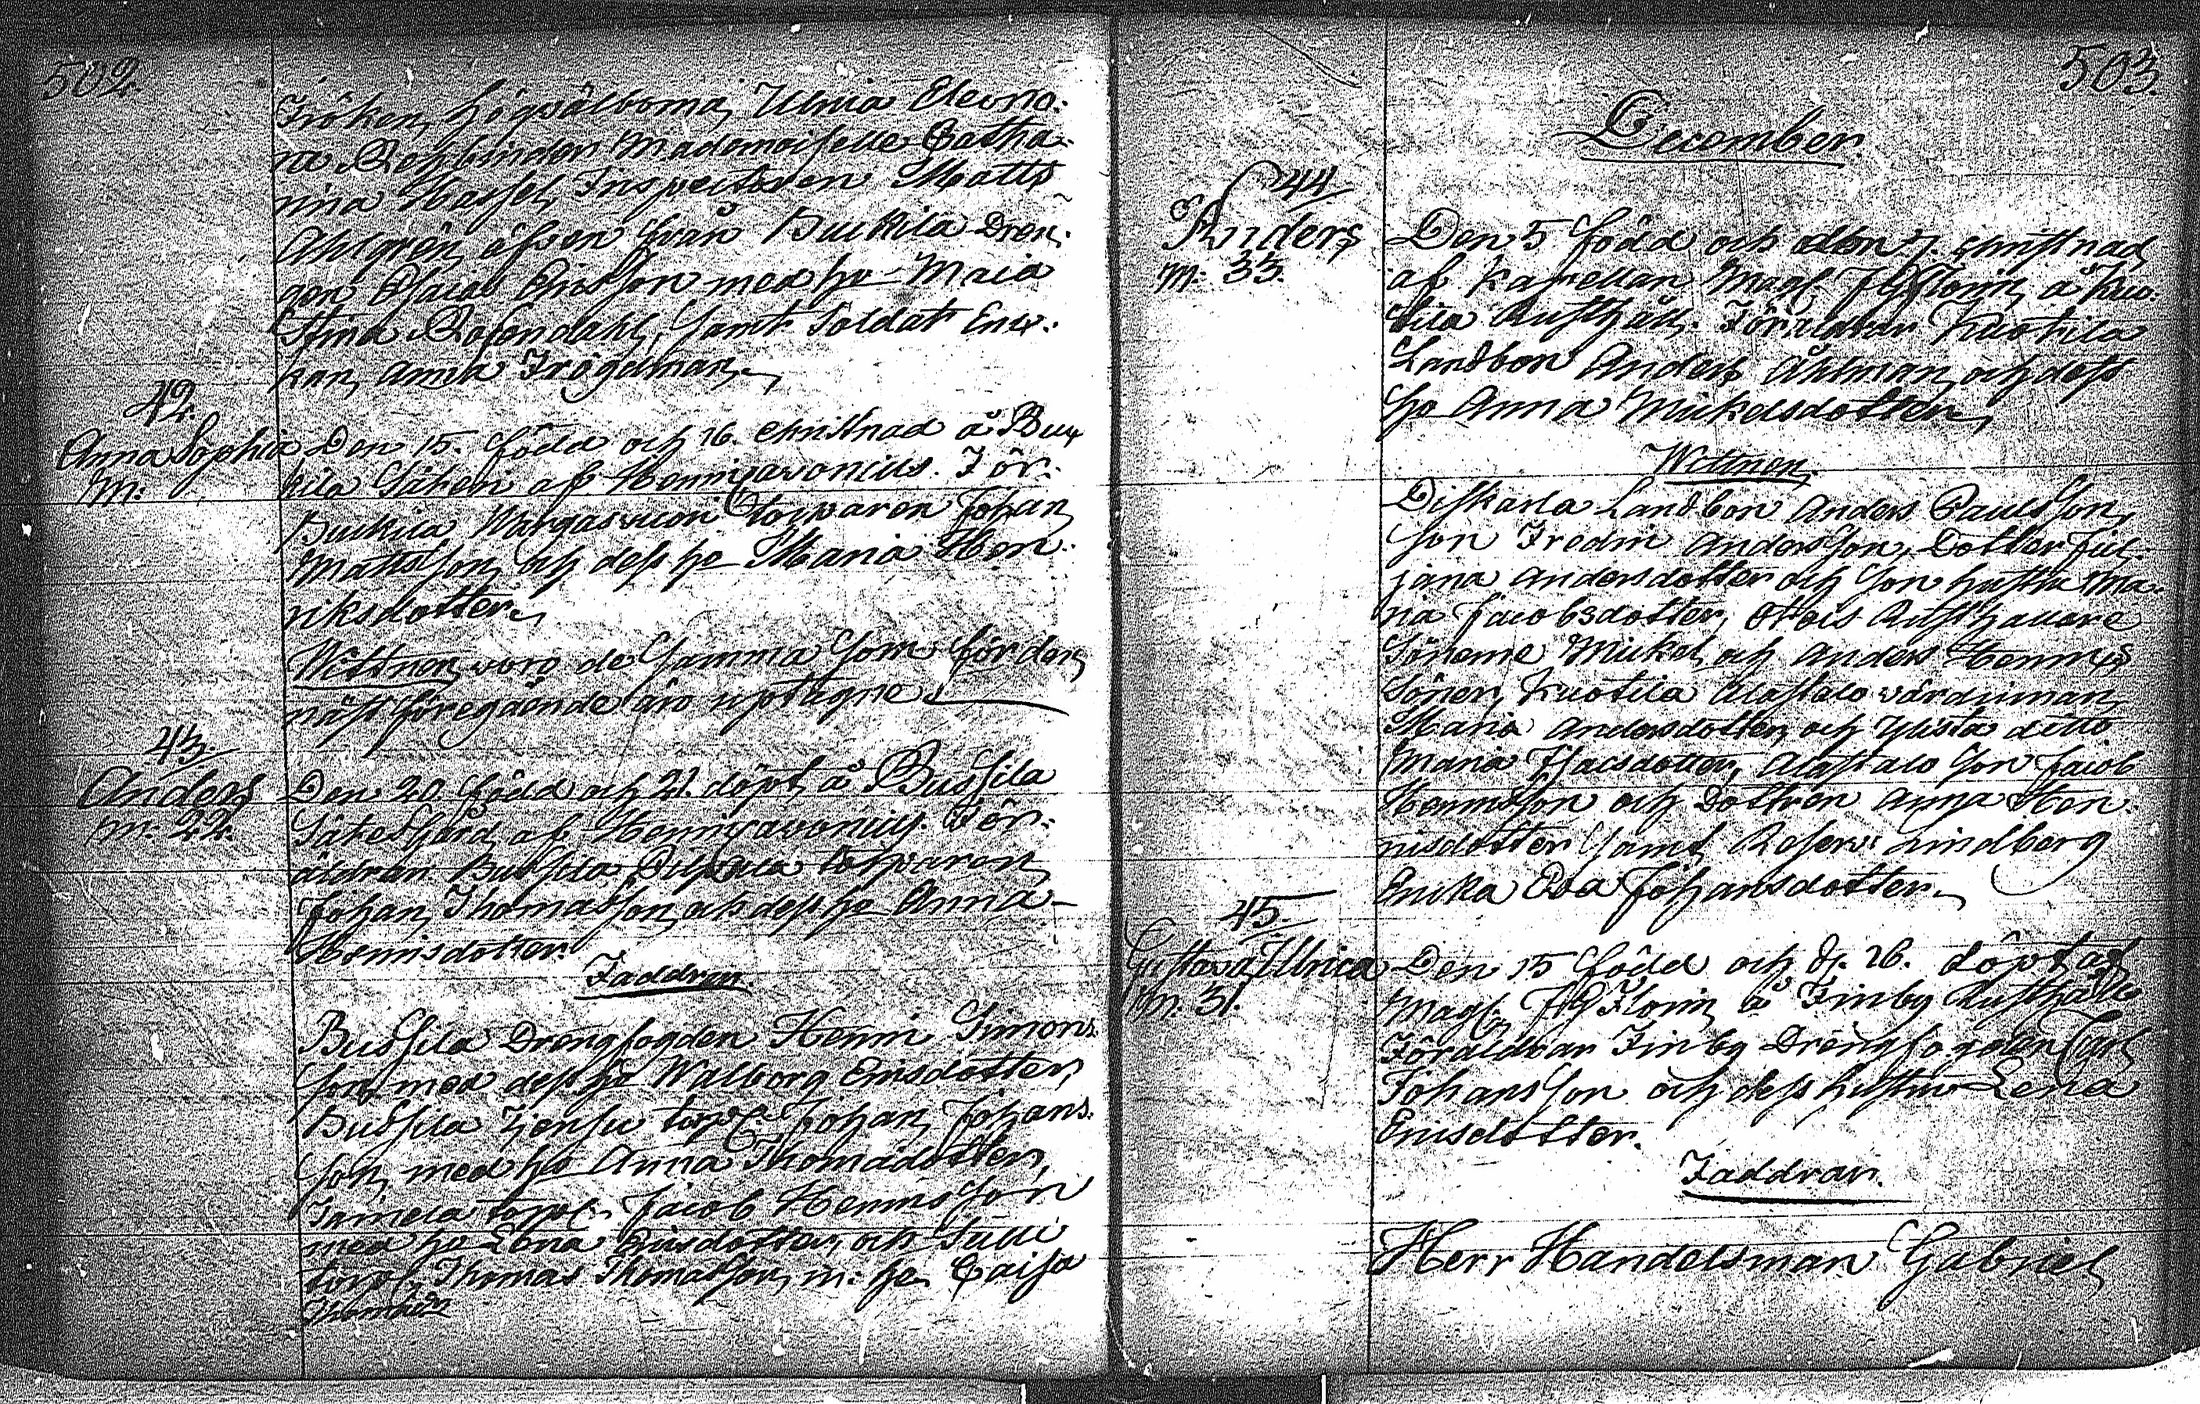 502.
Fröken Högvälborna Ulrica Eleono:
ra Rehbinder Mademoiselle Catha:
rina Hassel, Inspectoren Matts
Ahlgrén, äfven från Buckila Dren:
gen med ho Maia
Stina Rosendahl, samt Soldat Enk:
kan, Anna Trögdman.
42.
Anna Sophia
m:
Den 15. född och 16. Christnad å Buc
kila Säteri af Henric avonius. För:
Buckila torparen Johan
Mattsson, och dess ho Maria Hen:
riksdotter.
Wittnen, voro de samma som för den
näst föregående äro uptagne
43.
Anders
m: 22.
Den 20 född och 21. döpt å Bussila
Sätesgård af Henric avonius. För:
äldrar Bussila torparen
Johan Thomasson, och dess ho Anna
Hennisdotter.
Faddrar.
Bussila Drengfogden Henric Simons:
son, med dess ho Walborg Ericsdotter,
Bussila torp: Johan Johans:
son, med ho Anna Thomædotter,
torp: Jacob Hennsson
med ho Lena Ericsdotter, och
torp: Thomas Thomasson, m: ho Caisa
503.
December.
44
Anders
m: 33.
Den 5 född och den 7. christnad
af Kapellan Mag: Florin, å Kuo:
tila Rusthåll. Föräldrar Kuotila
Landbon Anders Åhlman, och dess
ho Anna Mickelsdotter,
Wittnen.
Diskarla Landbon Anders Paulsson,
Son Fredric Andersson, Dotter Jul:
jana Andersdotter och Son hustru Ma:
ria Jacobsdotter, Rusthållare
Sönerne Mickel och Anders Hennics
Söner, Kuotila Alastalo värdinnan
Maria Andersdotter, och Ylistå ditto
Maria Isacsdotter, Alastalo Son Jacob
Hennsson och Dottren Anna Hen:
nisdotter samt Reserv: Lindberg
Enka Eva Johansdotter.
45.
Gustava Ulrica
m. 31.
Den 15 född och d. 26. döpt af
Mag: Florin å Finby Rusthåll
Föräldrar Finby Drengfogden Carl
Johansson och dess hustru Lena
Ericsdotter.
Faddrar.
Herr Handelsman Gabriel